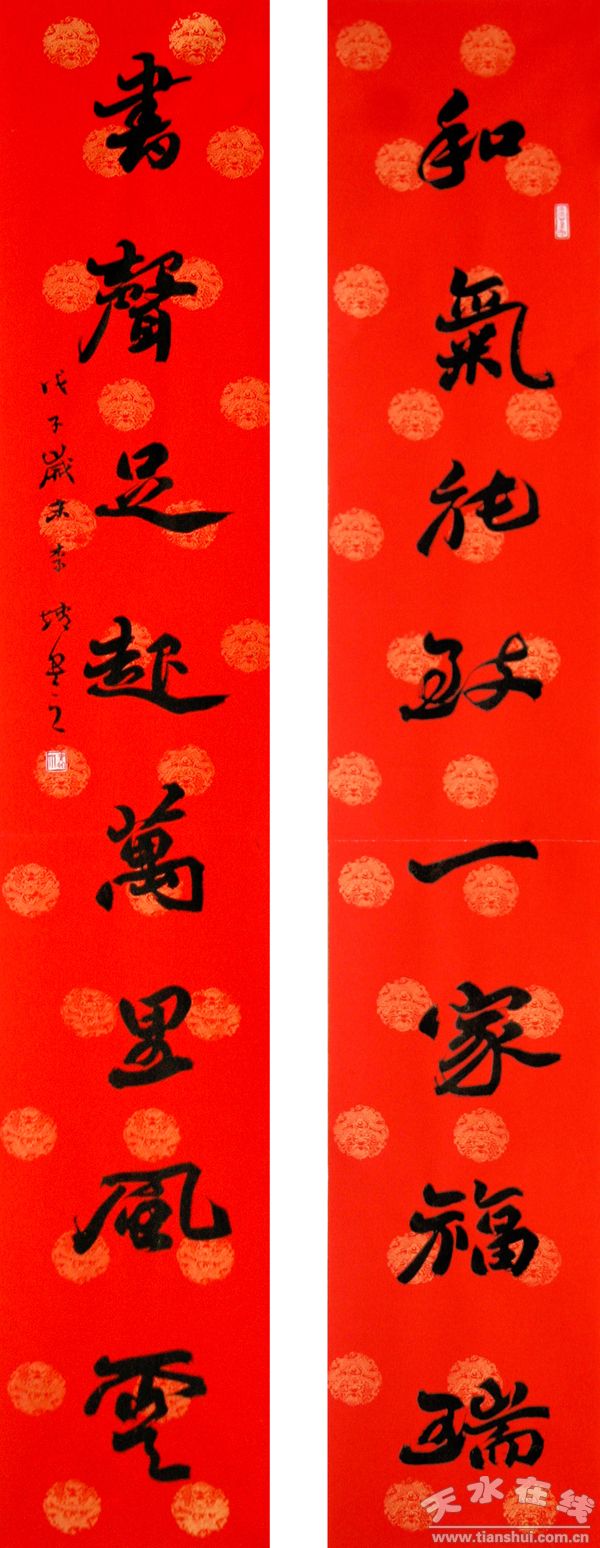 和氣能致一家福瑞
書聲足起萬里風雲
戊子歲末李
天水在线
www.tianshui.com.cn